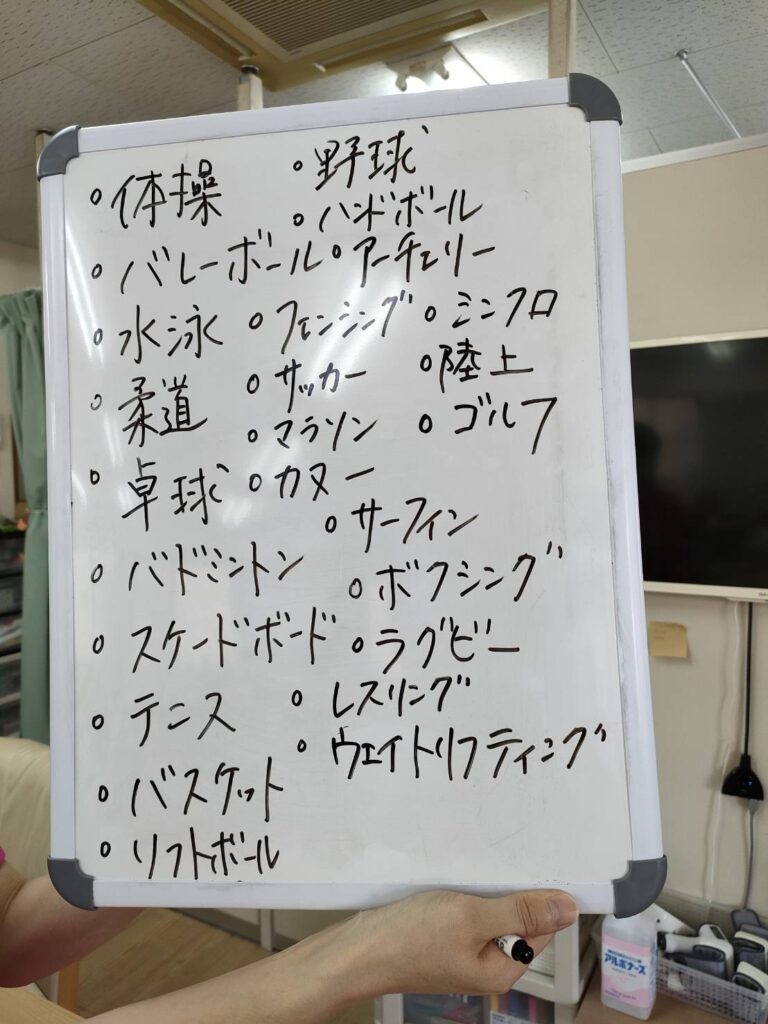 ○体操
○野球
○ハンドボール
○バレーボール
○アーチェリー
○水泳
○フェンシング
○シンクロ
○柔道
○サッカー
○陸上
○マラソン
○ゴルフ
○卓球
○カヌー
○サーフィン
○バドミントン
○ボクシング
○スケードボード
○ラグビー
○テニス
○レスリング
○ウェイトリフティング
○バスケット
○ソフトボール
アルボナース